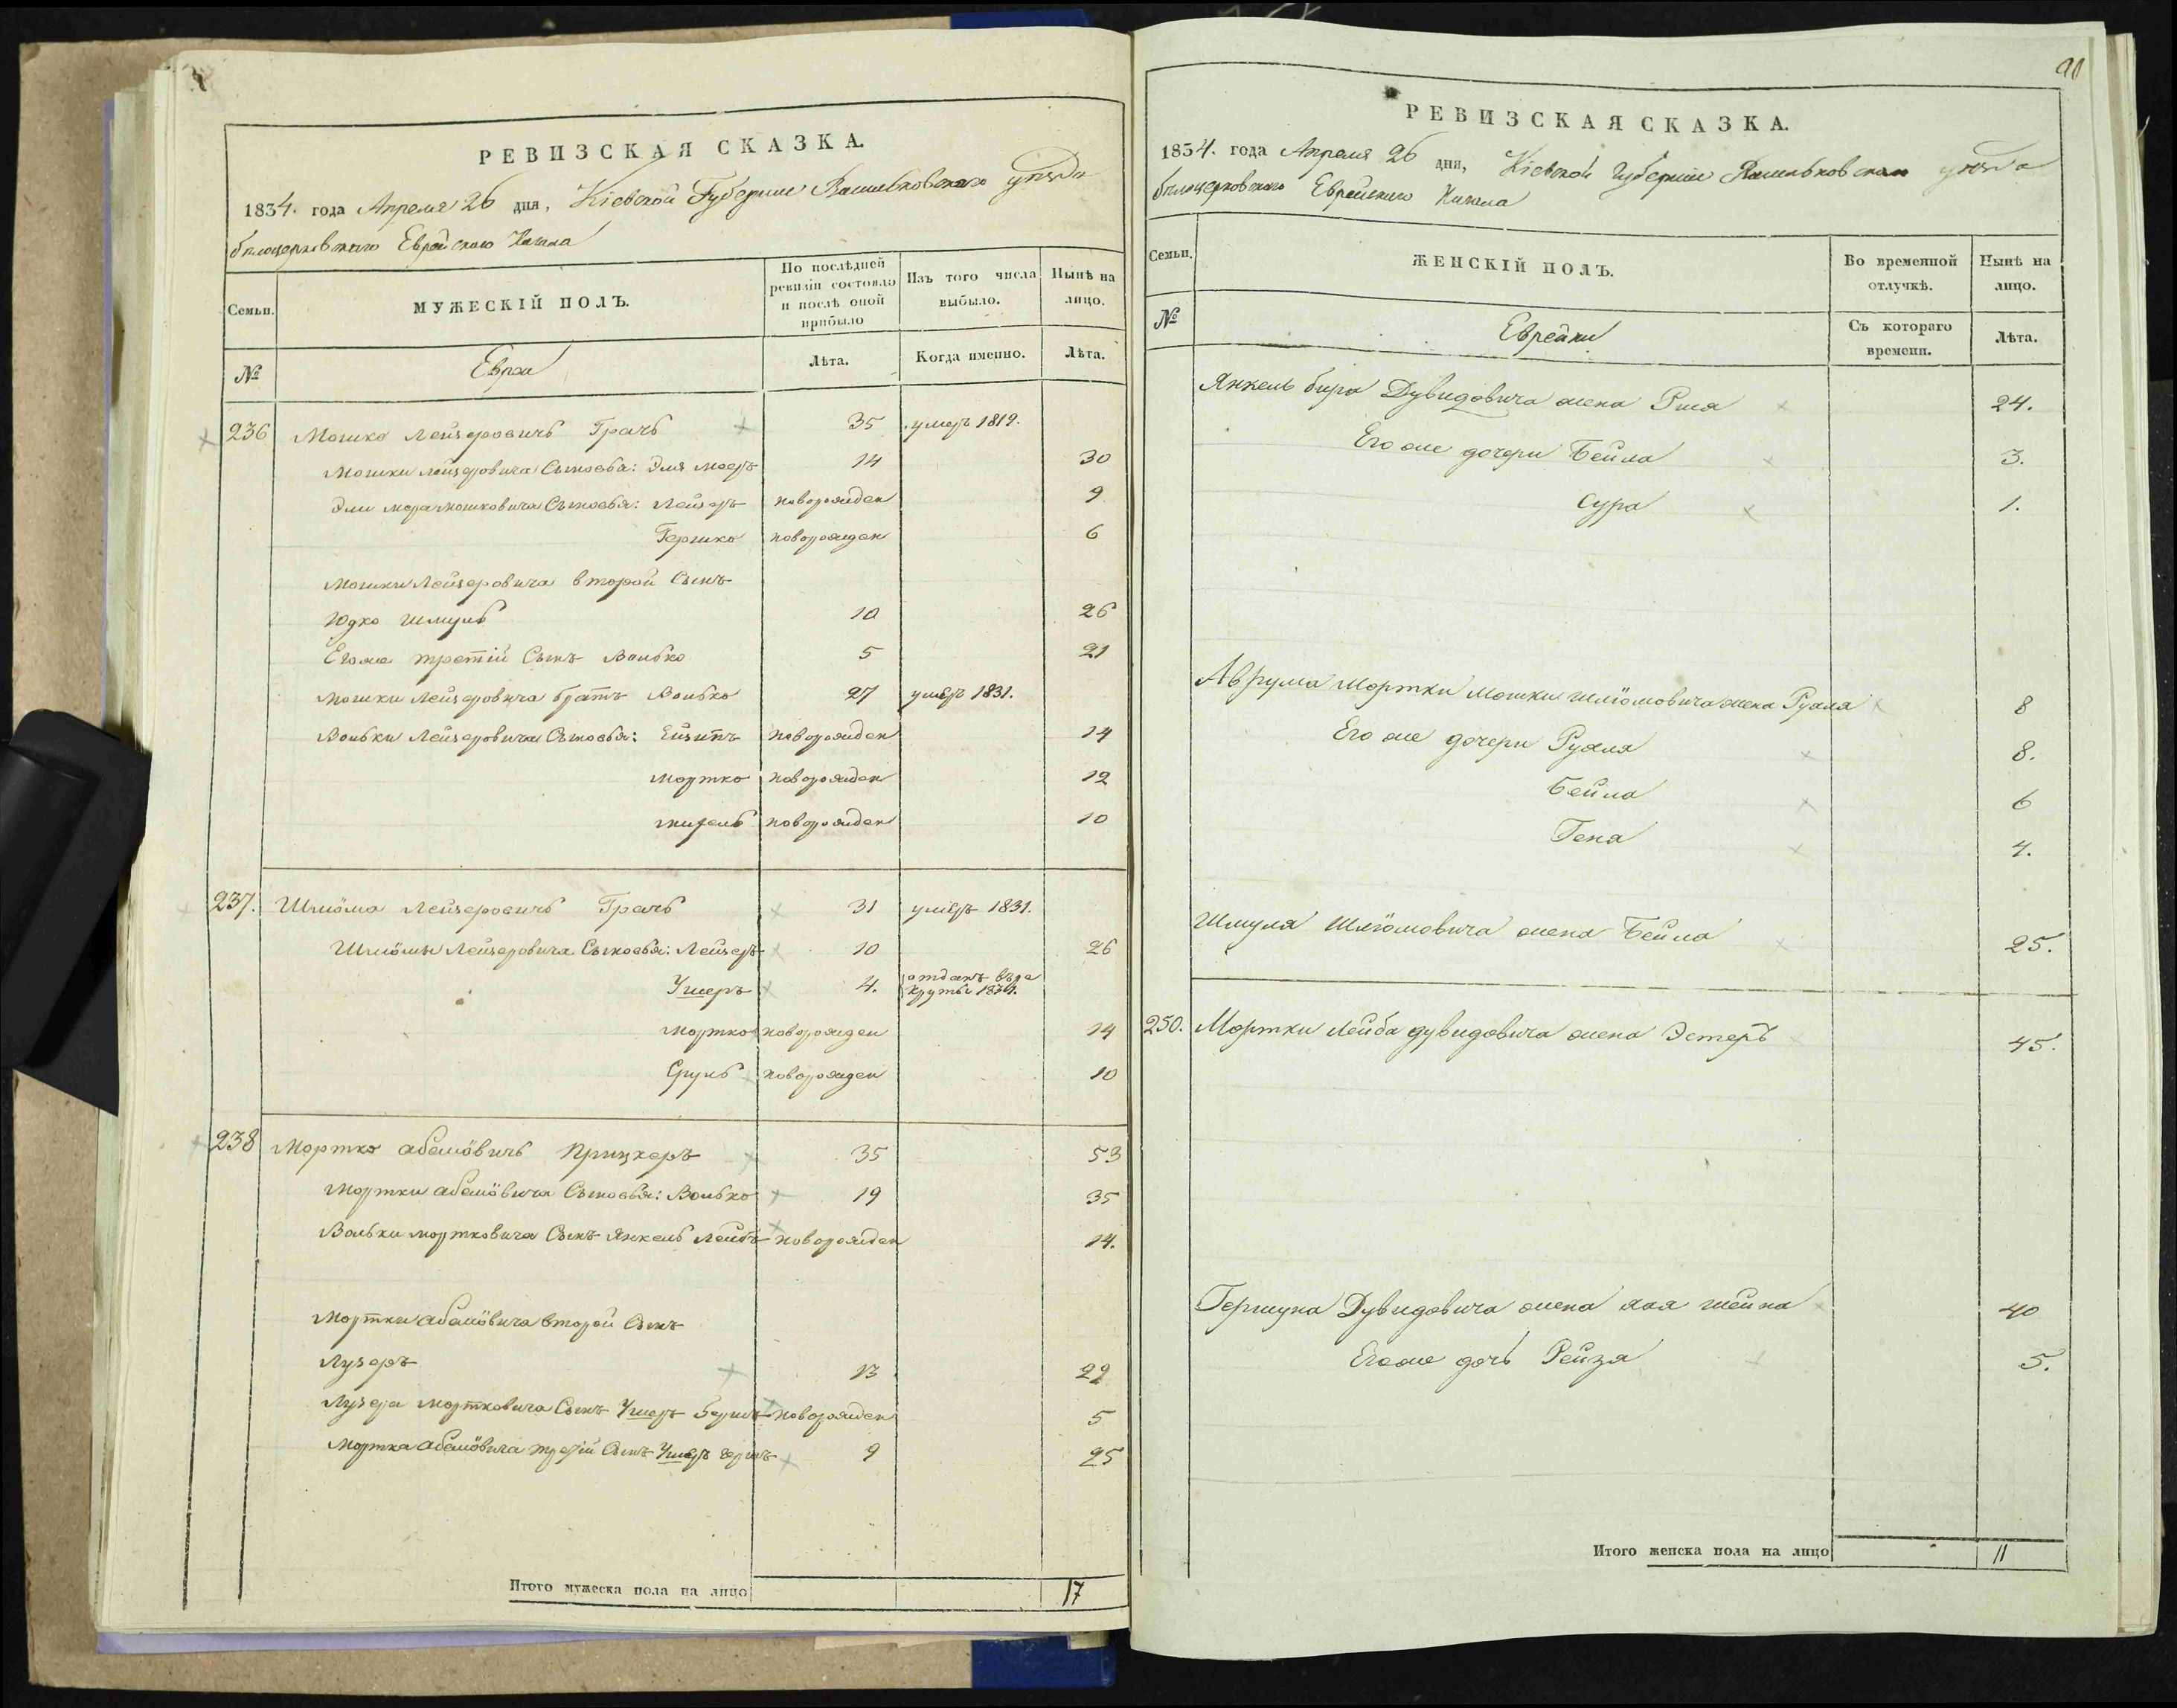 РЕВИЗСКАЯ СКАЗКА.
1834. года Апреля 26 дня, Кіевской Губерніи Васильковскаго уѣзда
бѣлоцерковскаго Еврейскаго Кагала
Семьи.
МУЖЕСКІЙ ПОЛЪ.
По послѣдней ревизіи состояло и послѣ оной прибыло
Изъ того числа выбыло.
Нынѣ на лицо.
№
Евреи
Лѣта.
Когда именно.
Лѣта.
236 Мошко Лейзеровичъ Грачъ 35 умеръ 1819.
Мошки Лейзеровича Сыновья: Эля Мееръ 14 30
Эли Мера Мошковича Сыновья: Лейзеръ новорожден 9
Гершко новорожден 6
Мошки Лейзеровича второй Сынъ
Юдко Шмуль 10 26
Егоже третій Сынъ Волько 5 21
Мошки Лейзеровича братъ Волько 27 умеръ 1831.
Вольки Лейзеровича Сыновья: новорожден 14
Мортко новорожден 12
новорожден 10
237. Шліома Лейзеровичъ Грачъ 31 умеръ 1831.
Шліомы Лейзеровича Сыновья: Лейзеръ 10 26
Ушеръ 4. отданъ въ рекруты 1834.
Мортко новорожден 14
Сруль новорожден 10
238 Мортко Абашовичъ Прицкеръ 35 53
Мортки Абашовича Сыновья: Волько 19 35
Вольки Мортковича Сынъ Янкель Лейбъ новорожден 14.
Мортки Абашовича второй Сынъ
Лузеръ 13 22
Лузера Мортковича Сынъ Ушеръ новорожден 5
Мортка Абашовича третій Сынъ Ушеръ 9 25
Итого мужеска пола на лицо 17
90
РЕВИЗСКАЯ СКАЗКА.
1834. года Апреля 26 дня, Кіевской Губерніи Васильковскаго уѣзда
бѣлоцерковскаго Еврейскаго Кагала
Семьи.
ЖЕНСКІЙ ПОЛЪ.
Во временной отлучкѣ.
Нынѣ на лицо.
№
Еврейки
Съ котораго времени.
Лѣта.
Янкель Дувидовича жена 24.
Его же дочери Бейла 3.
Сура 1.
Аврума Мортки Мошки Шліомовича жена Рухля 8
Его же дочери Рухля 8.
Бейла 6
Гена 4.
Шмуля Шліомовича жена Бейла 25.
250. Мортки Лейба Дувидовича жена Эстеръ 45.
Гершуна Дувидовича жена Хая Шейна 40
Егоже дочь Рейза 5.
Итого женска пола на лицо 11